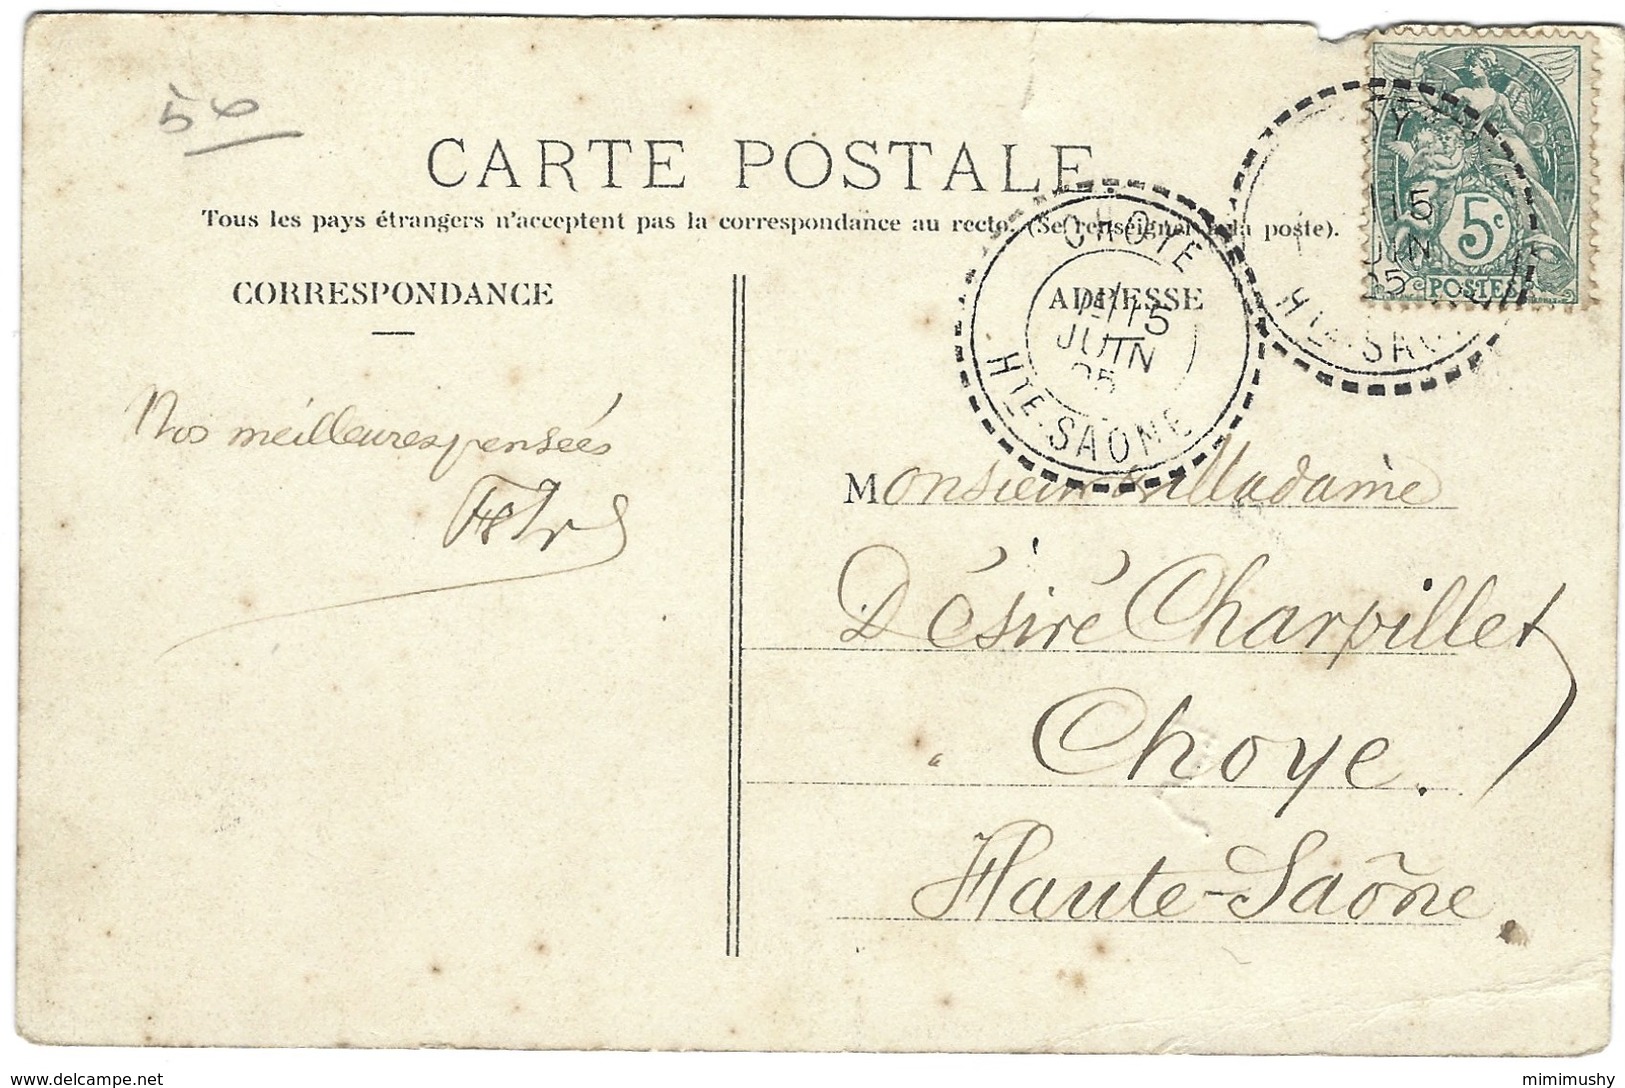 50
CARTE POSTALE
Tous les pays étrangers n'acceptent pas la correspondance au recto. (Se renseigner à la poste).
CORRESPONDANCE
ADRESSE
CHOYE
15
JUIN
05
HTE-SAONE
15
JUIN
05
HTE-SAO
FRANÇAISE
5c
POSTES
Nos meilleures pensées
Monsieur Madame
Désiré Charpillet
Choye.
Haute-Saône.
www.delcampe.net
mimimushy